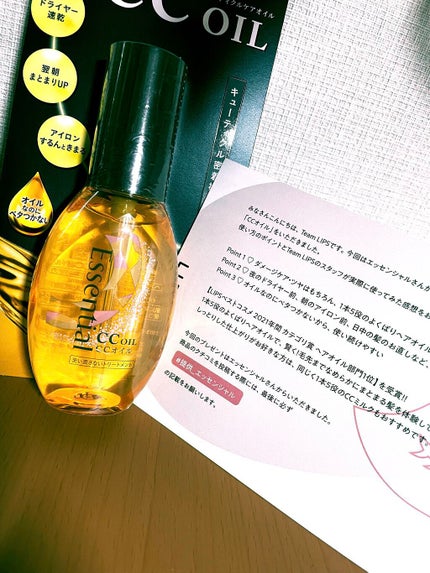 CC OIL
ドライヤー
速乾
翌朝
まとまりUP
アイロン
するんときまる
オイル
なのに
ベタつかない
Essential
CC OIL
CCオイル
洗い流さないトリートメント
みなさんこんにちは、Team LIPSです。今回はエッセンシャルさんか
「CCオイル」をいただきました。
使い方のポイントとTeam LIPSのスタッフが実際に使ってみた感想をお
Point 1♡ ダメージケア・ツヤはもちろん、1本5役のよくばりヘアオイル
Point 2♡ 夜のドライヤー前、朝のアイロン前、日中の髪のお直しなど、
Point 3♡ オイルなのにベタつかないから、使い続けやすい
【LIPSベストコスメ2021年間カテゴリ賞 ヘアオイル部門1位】を受賞!!
1本5役のよくばりヘアオイルで、賢く毛先までなめらかにまとまる髪を体験して
しっとりした仕上がりがお好きな方は、同じく1本5役のCCミルクもおすすめです。
今回のプレゼントはエッセンシャルさんからいただきました。
商品のクチコミを投稿する際には、最後に必ず
#提供_エッセンシャル
の記載をお願いします。